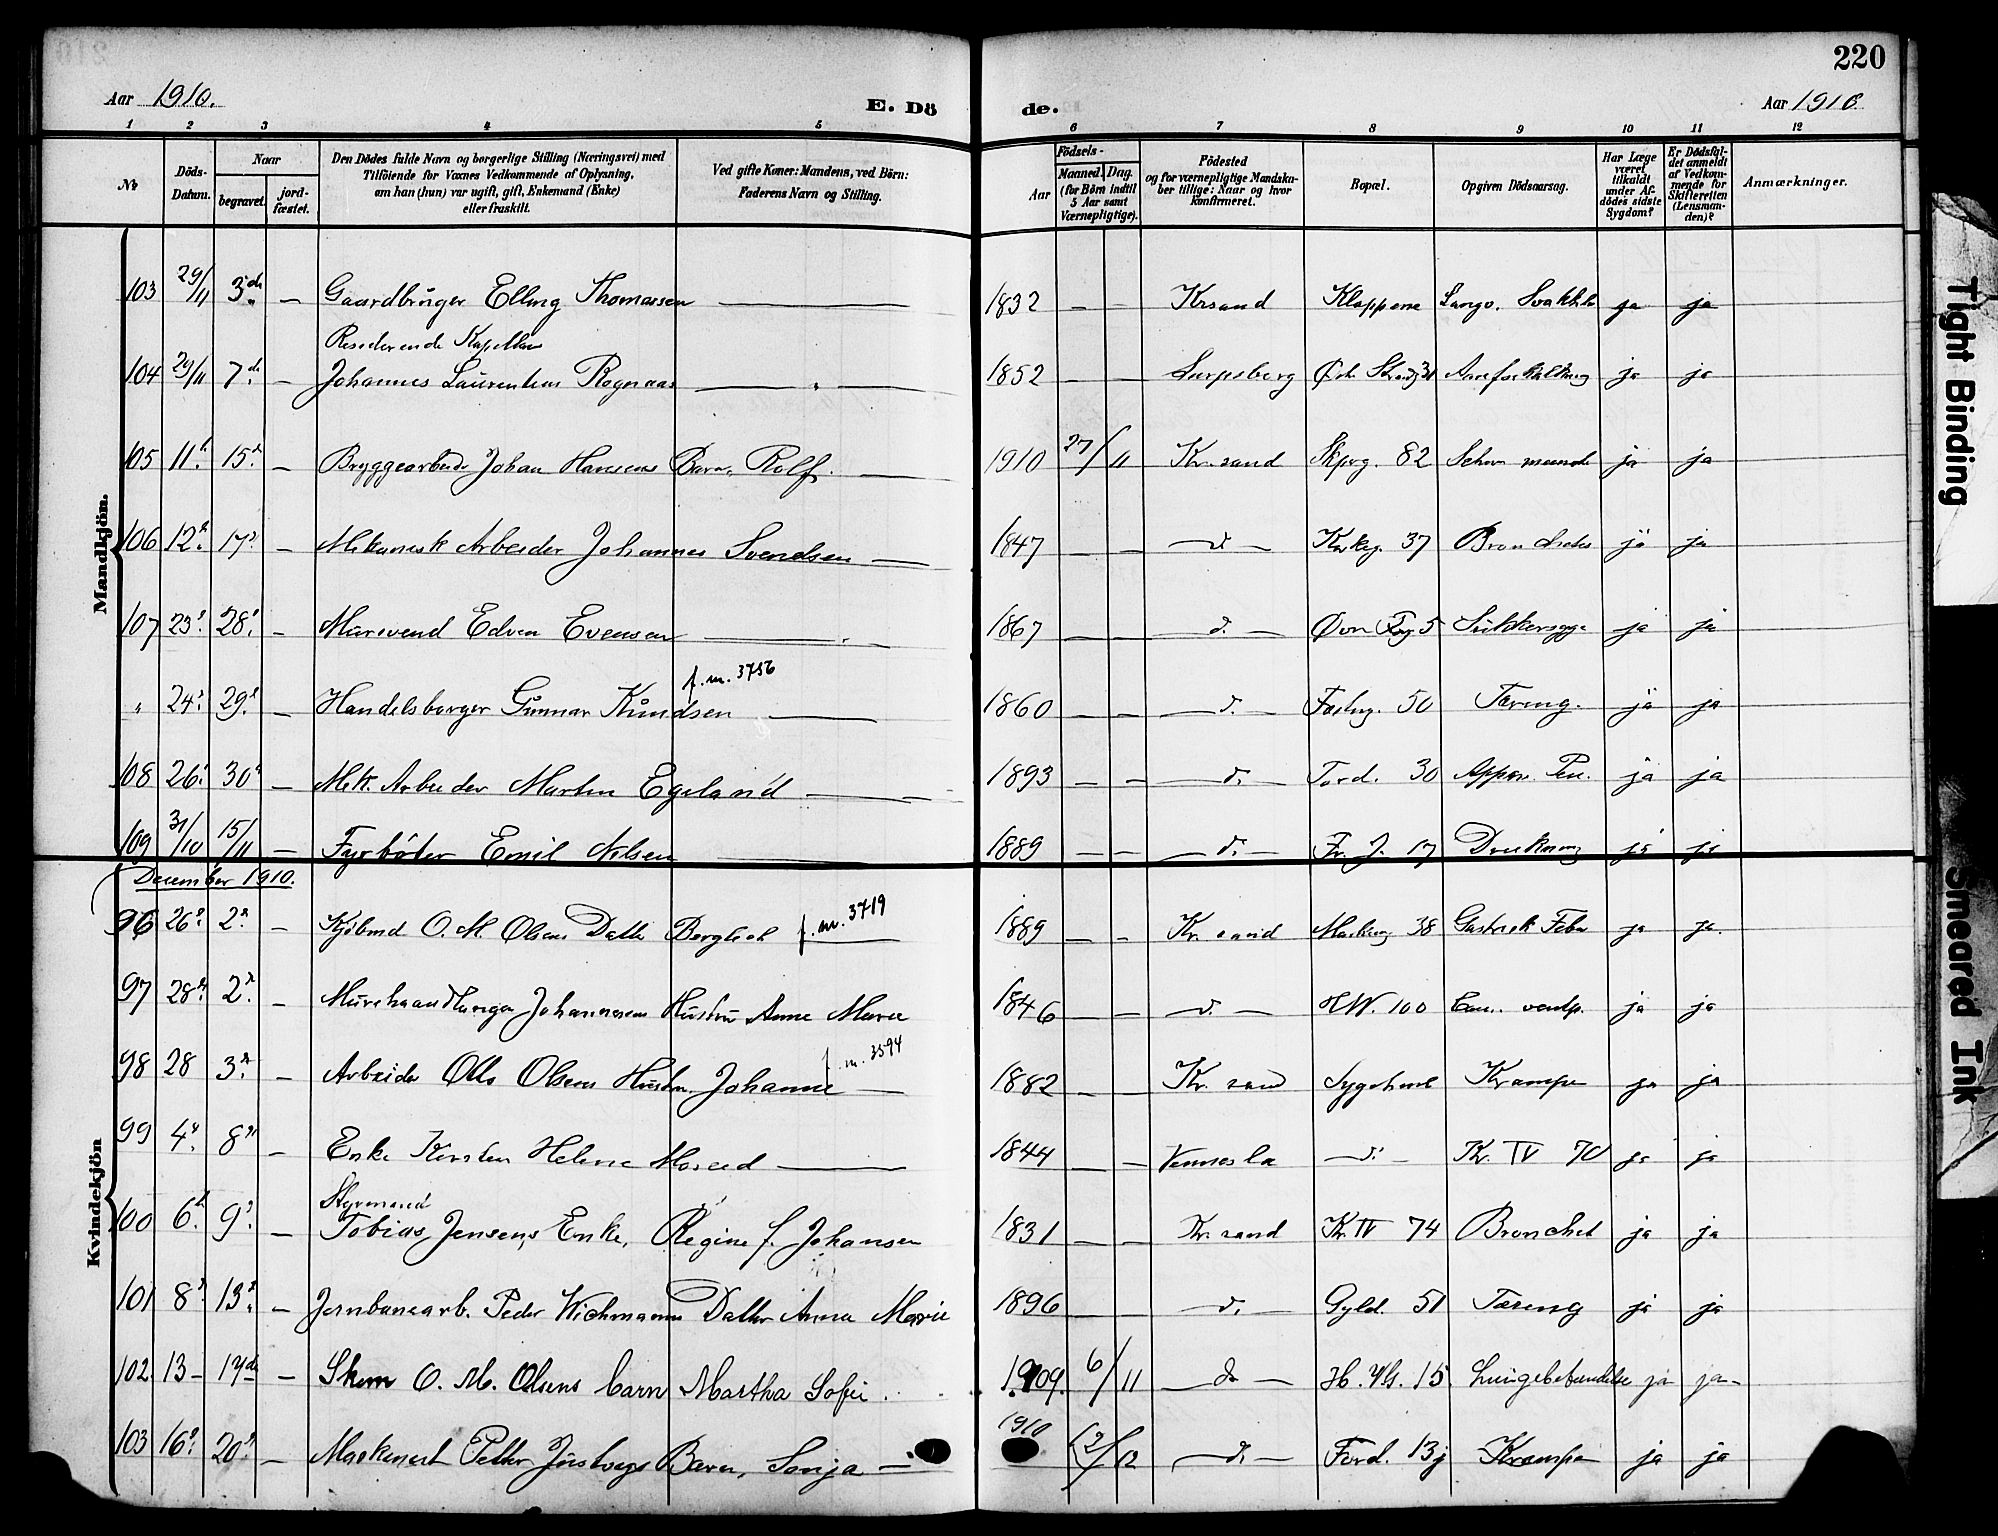 220
Aar 1910.
E. Dö
de.
Aar 1910.
1 2 3 4 5 6 7 8 9 10 11 12
No
Döds-Datum.
Naar
begravet.
jord-fæstet.
Den Dödes fulde Navn og borgerlige Stilling (Næringsvei) med
Tilföiende for Voxnes Vedkommende af Oplysning,
om han (hun) var ugift, gift, Enkemand (Enke)
eller fraskilt.
Ved gifte Koner: Mandens, ved Börn:
Faderens Navn og Stilling.
Födsels-
Aar
Maaned. Dag.
(for Börn indtil
5 Aar samt
Værnepligtige).
Födested
og for værnepligtige Mandska-
ber tillige: Naar og hvor
konfirmeret.
Bopæl.
Opgiven Dödsaarsag.
Har Læge
været
tilkaldt
under Af-
dödes sidste
Sygdom?
Er Dödsfal-
det anmeldt
af Vedkom-
mende for
Skifteretten
(Lensman-
den)?
Anmærkninger.
Mandkjön.
103 29/11 3de — Gaardbruger Elling Thomassen — 1832 — — Krsand Kloppene Lango. ja ja
Residerende Kapellan
104 29/11 7d. — Johannes Laurentius Rognaas — 1852 — — Sarpsborg 31 Aareforkalkning ja ja
105 11. 15. — Bryggearbeider Johan Hansens Barn, Rolf. — 1910 27/11 Kr.sand Skprg. 82 ja ja
106 12. 17. — Mekanisk Arbeider Johannes Svendsen — 1847 — — d. Kirkeg. 37 Bronchitis ja ja
107 23. 28. — Mursvend Edvin Evensen — 1867 — — d. 5 Sukkersyge ja ja
f. nr. 3756
" 24. 29. — Handelsborger Gunnar Knudsen — 1860 — — d. Festng. 50 Tæring. ja ja
108 26. 30. — Mek. Arbeider Martin Egeland — 1893 — — d. Tord. 30 ja ja
109 31/10 15/11 — Fyrbøter Emil Nilsen — 1889 — — d. Fr. J. 17 Drukning ja ja
December 1910.
Kvindekjön
96 26. 2. — Kjøbmd O. M. Olsens Datter Bergliot f. nr. 3719 — 1889 — — Kr.sand 38 Gastrisk Feber ja ja.
97 28. 2. — Murehaandlanger Johannesens Hustru Anne Marie 1846 — — d. H.W. 100 ja ja
f. nr. 3594
98 28 3. — Arbeider Olsens Hustru Johanne — 1882 — — Kr.sand Sygehuset Krampe ja ja
99 4. 8. — Enke Kirsten Helene — 1844 — — Vennesla d. Kr. IV 70 ja ja
Styrmand
100 6. 9. — Tobias Jensens Enke, Regine f. Johansen 1831 — — Kr.sand Kr IV 74 Bronchit ja ja
101 8. 13. — Jernbanearb. Peder Wichmanns Datter Anna Marie 1896 — — d. Gyld. 51 Tæring ja ja
102. 13 — 17de — Skom O. M. Olsens barn Martha Sofie. 1909. 6/11 d. H.W.G. 15. Lungebetændelse ja ja
103 16. 20. — Maskinist Petter Barn, Sonja — 1910 12/12 d. Tord. 13j Krampe ja ja
Tight Binding
Smeared Ink